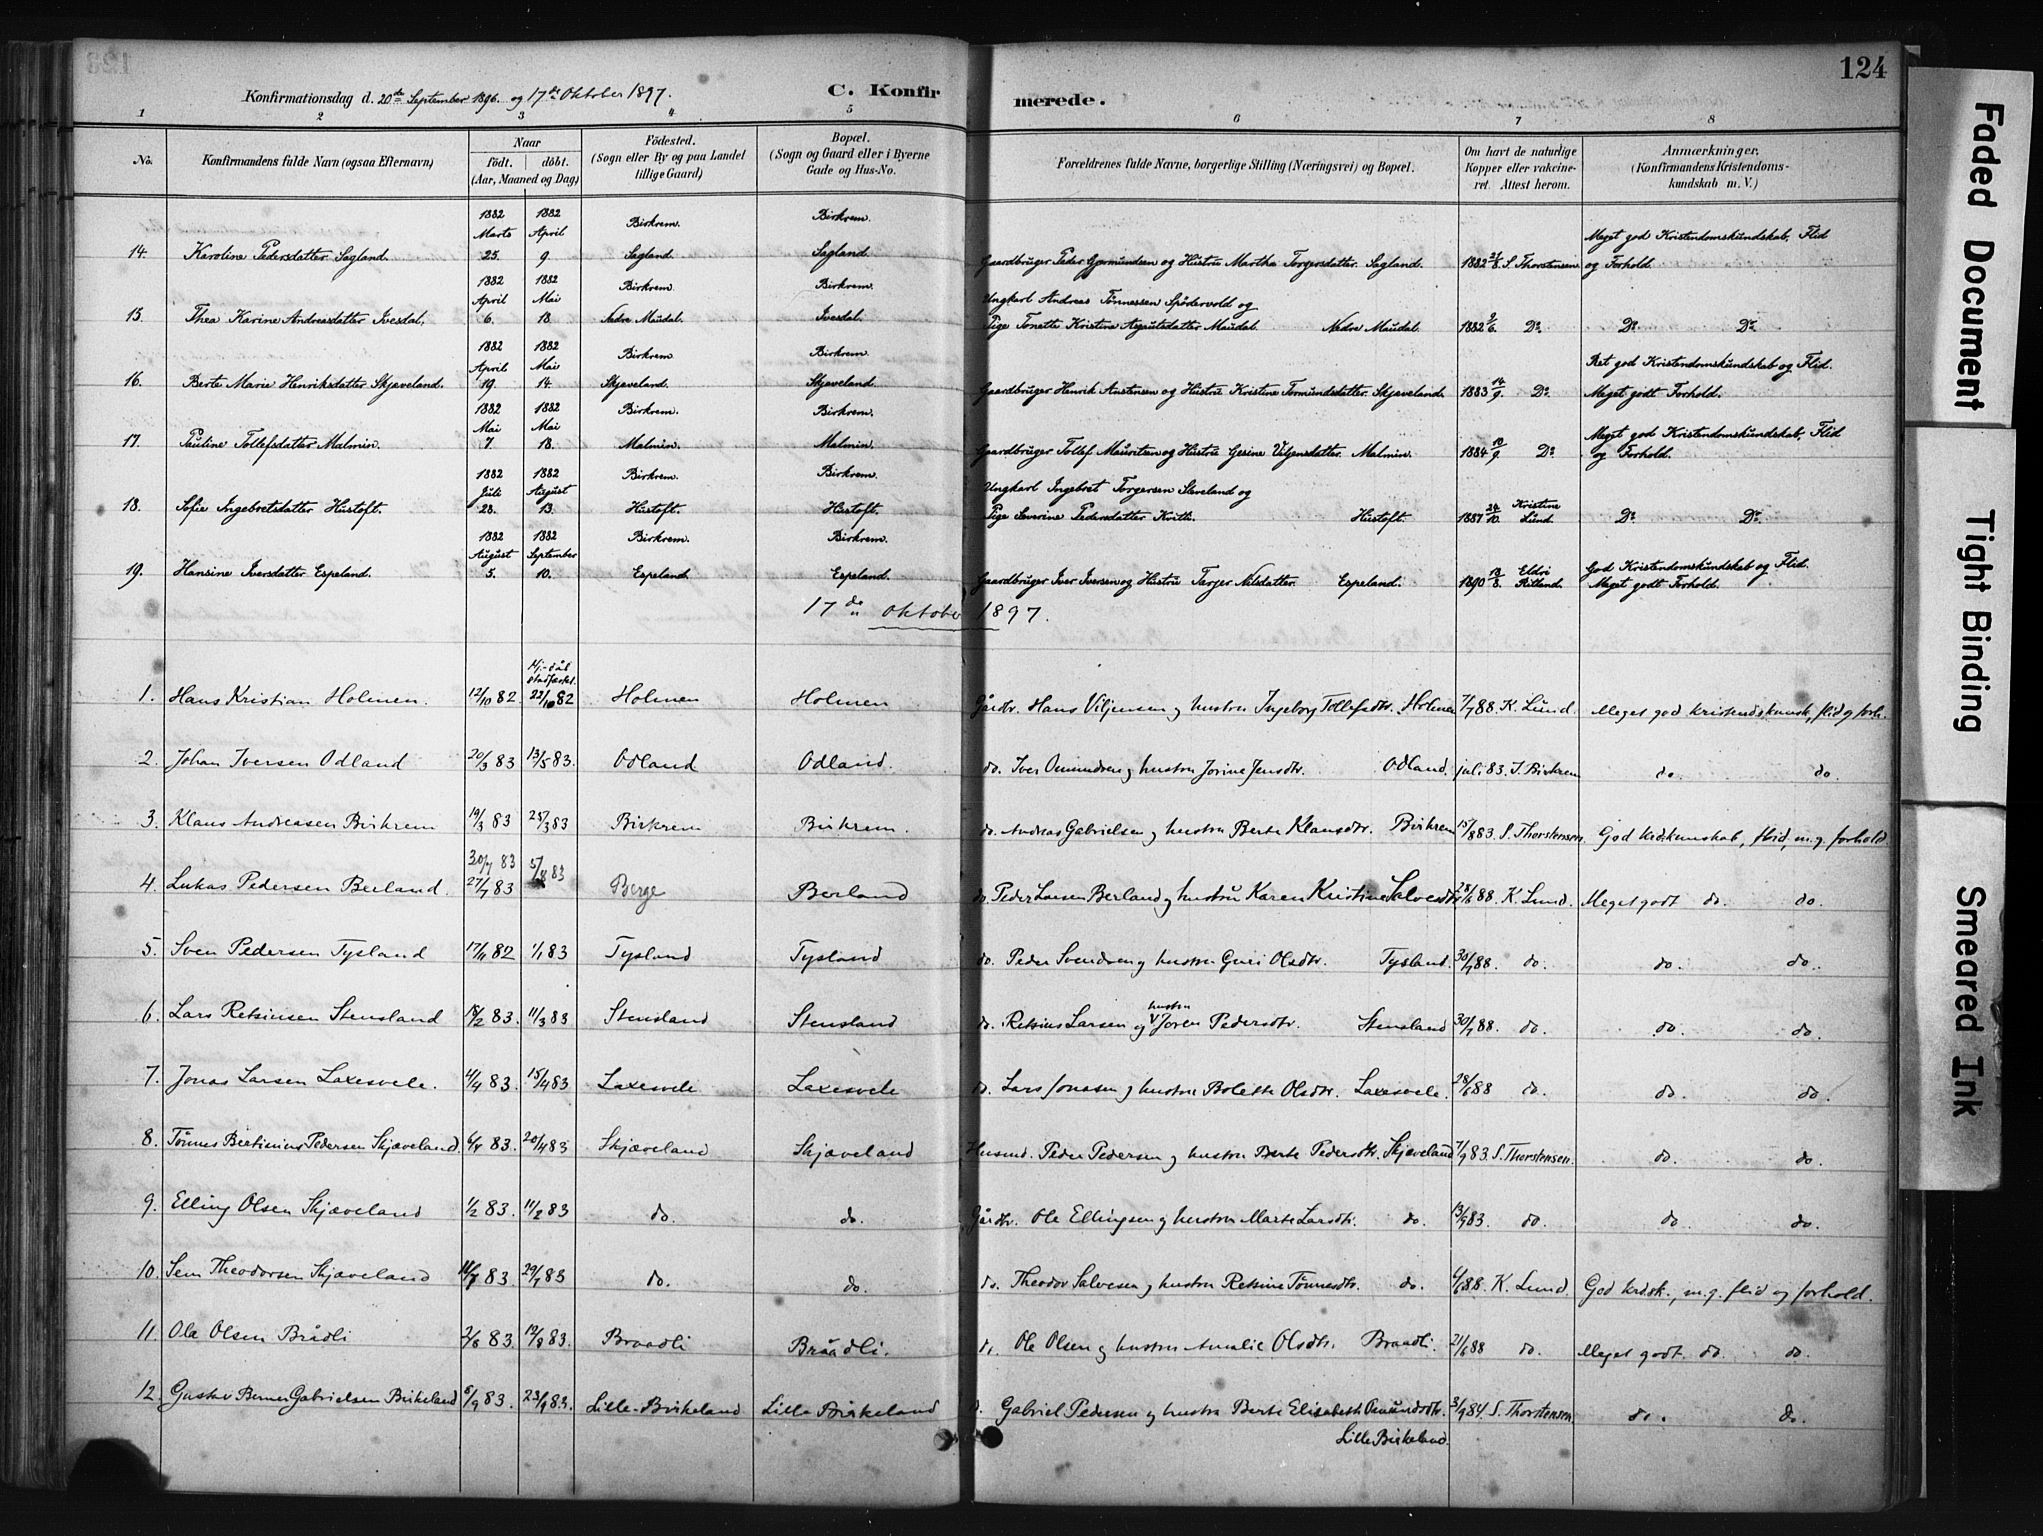 124
Konfirmationsdag d. 20de September 1896. og 17de Oktober 1897.
C. Konfirmerede.
1 2 3 4 5 6 7 8
No.
Konfirmandens fulde Navn (ogsaa Efternavn)
Naar
födt. döbt.
(Aar, Maaned og Dag)
Födested.
(Sogn eller By og paa Landet
tillige Gaard)
Bopæl.
(Sogn og Gaard eller i Byerne
Gade og Hus-No.
Forældrenes fulde Navne, borgerlige Stilling (Næringsvei) og Bopæl.
Om havt de naturlige
Kopper eller vakcine-
ret. Attest herom.
Anmærkninger,
(Konfirmandens Kristendoms-
kundskab m. V.)
1882 1882 Birkrem. Birkrem.
Marts April Meget god Kristendomskundskab, Flid
14. Karoline Pedersdatter Sagland. 25. 9. Sagland. Sagland. Gaardbruger Peder Gjermundsen og Hustru Martha Torgersdatter. Sagland. 1882 21/8. S. Thorstensen og Forhold.
1882 1882 Birkrem. Birkrem.
April Mai Ungkarl Andreas Tönnessen Spödervold og
15. Thea Karine Andreasdatter Ivesdal. 6. 18. Nedre Maudal. Ivesdal. Pige Tonette Kristine Asgautsdatter Maudal. Nedre Maudal. 1882 9/6. Do Do Do
1882 1882 Birkrem. Birkrem.
April Mai Ret god Kristendomskundskab og Flid.
16. Berte Marie Henriksdatter Skjæveland. 19. 14. Skjæveland. Skjæveland. Gaardbruger Henrik Austensen og Hustru Kristine Tormundsdatter. Skjæveland. 1883 14/9. Do Meget godt Forhold.
1882 1882 Birkrem. Birkrem.
Mai Mai Meget god Kristendomskundskab, Flid
17. Pauline Tollefsdatter Malmin. 7. 18. Malmin. Malmin. Gaardbruger Tollef Mauritsen og Hustru Gesine Viljensdatter. Malmin. 1884 10/9. Do og Forhold.
1882 1882 Birkrem. Birkrem.
Juli August Ungkarl Ingebret Torgersen Sleveland og
18. Sofie Ingebretsdatter Hustoft. 23. 13. Hustoft. Hustoft. Pige Severine Pedersdatter Kvitli. Hustoft. 1887 24/10. Kristine Lund. Do Do
1882 1882 Birkrem. Birkrem.
August September God Kristendomskundskab og Flid.
19. Hansine Iversdatter Espeland. 5. 10. Espeland. Espeland. Gaardbruger Iver Iversen og Hustru Tarjer Nilsdatter. Espeland. 1890 13/8. Eldri Ritland. Meget godt Forhold.
17de Oktober 1897.
1. Hans Kristian Holmen. 12/10 82 22/10 82 Holmen Holmen Gårdbr. Hans Viljensen og hustru Ingeborg Tollefsdtr. Holmen 7/7 88. K. Lund. Meget god kristendskunsk, flid og forh.
2. Johan Iversen Odland 20/3 83 13/5 83. Odland Odland. do. Iver Omundsen og hustru Jorine Jensdtr. Odland. juli 83. J. Birkrem do. do.
3. Klaus Andreassen Birkrem 19/3 83 25/3 83 Birkrem Birkrem. do. Andreas Gabrielsen og hustru Berte Klausdtr. Birkrem 15/8 83. S. Thorstensen. God krdskunskab, flid, m.g. forhold
30/7 83
4. Lukas Pedersen Berland. 27/7 83 5/8 83 Berge Berland do. Peder Larsen Berland og hustru Karen Kristine Salvesdtr 28/6 88. K. Lund. Meget godt do. do.
5. Sven Pedersen Tysland 17/11 82 1/1 83 Tysland Tysland do. Peder Svendsen og hustru Guri Olsdtr. Tysland. 30/7 88. do. do. do.
6. Lars Retsiusen Stensland 18/2 83. 11/3 83 Stensland Stensland do. Retsius Larsen og hustru Joren Pedersdtr. Stensland 30/7 88. do. do. do.
7. Jonas Larsen Laxesvele. 4/4 83. 15/4 83 Laxesvele Laxesvele do. Lars Jonassen og hustru Bolette Olsdtr. Laxesvele. 28/6 88 do. do. do.
8. Tönnes Bertinius Pedersen Skjæveland. 6/4 83. 20/4 83 Skjæveland Skjæveland Husmd. Peder Pedersen og hustru Berte Pedersdtr. Skjæveland 7/9 83. S. Thorstensen. do. do.
9. Elling Olsen Skjæveland 1/2 83. 11/2 83 do. do. Gårdbr. Ole Ellingsen og hustru Marte Larsdtr. do. 13/9 83. do. do. do.
10. Sem Theodorsen Skjæveland 11/7 83 29/7 83 do. do. do. Theodor Salvesen og hustru Retsine Tönnesdtr. do. 4/6 88. K. Lund. God krdsk., m.g. flid og forhold.
11. Ole Olsen Brådli 2/8 83. 19/8 83. Braadli Bråådli. do. Ole Olsen og hustru Amalie Olsdtr. Braadli. 21/6 88 do. Meget godt. do. do.
12. Gustav Berner Gabrielsen Birkeland 8/9 83. 23/9 83. Lille-Birkeland Lille Birkeland do. Gabriel Pedersen og hustru Berte Elisabeth Omundsdtr. 3/9 84. S. Thorstensen. do. do.
Lille Birkeland.
Faded Document
Tight Binding
Smeared Ink